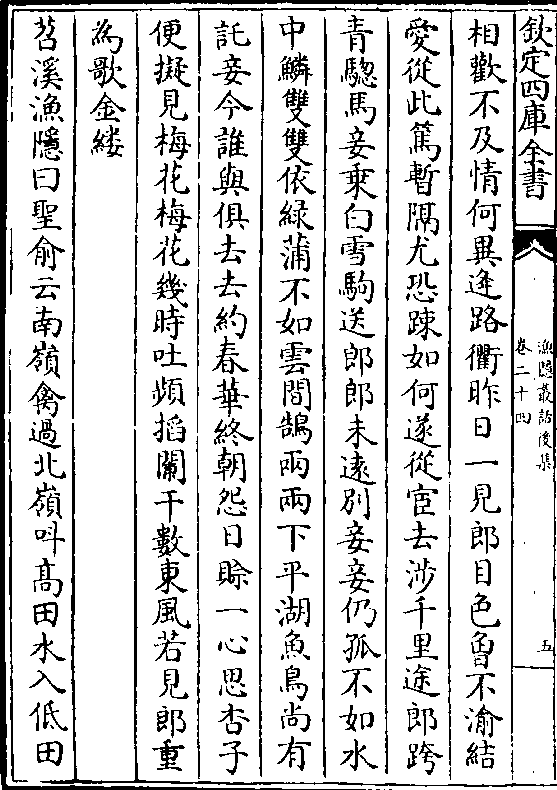 欽定四庫全書
漁隱叢話後集
卷二十四
五
相歡不及情何異逢路衢昨日一見郎目色曾不渝結
愛從此篤暫隔尤恐踈如何遂從宦去涉千里途郎跨
青驄馬妾乗白雪駒送郎郎未逺別妾妾仍孤不如水
中鱗雙雙依緑蒲不如雲間鵠兩兩下平湖魚鳥尚有
託妾今誰與俱去去約春華終朝怨日賖一心思杏子
便擬見梅花梅花幾時吐頻搯闌干數東風若見郎重
為歌金縷
苕溪漁隱曰聖俞云南嶺禽過北嶺呌髙田水入低田